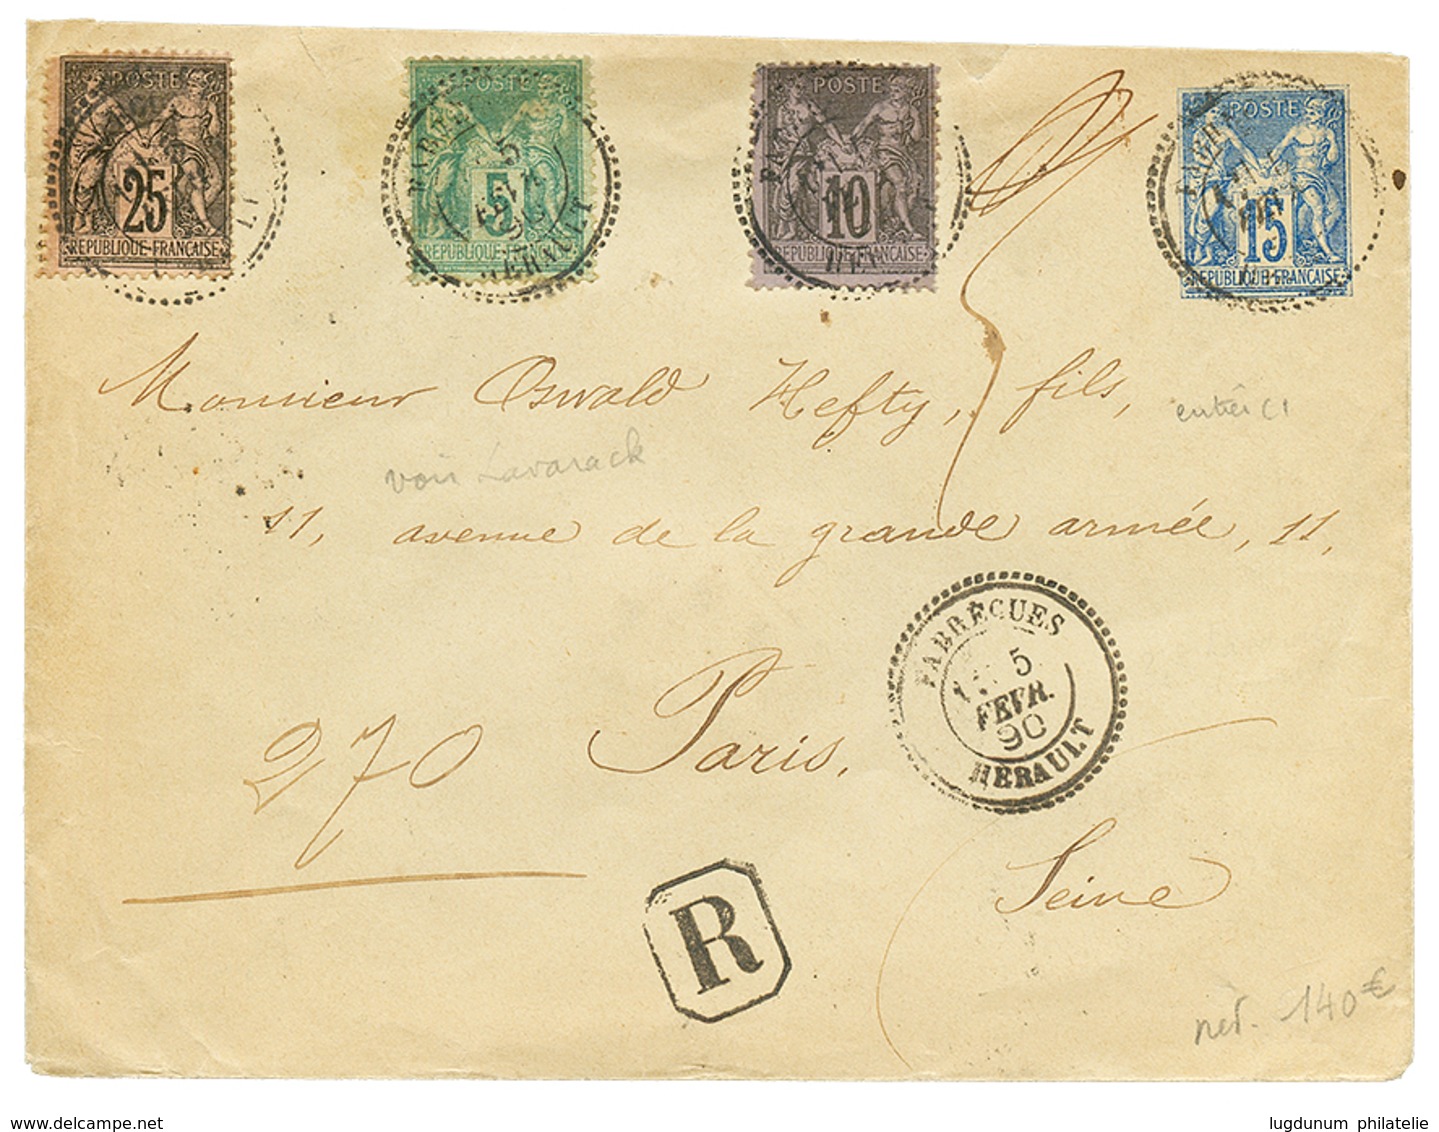 POSTE
25
REPUBLIQUE FRANÇAISE
POSTE
5
REPUBLIQUE FRANÇAISE
HERAULT
POSTE
10
REPUBLIQUE FRANÇAISE
POSTE
15
REPUBLIQUE FRANÇAISE
Monsieur Oswald Hefty, fils,
voir Lavarack
11, avenue de la grande armée, 11,
FABRÈGUES
5
FEVR.
90
HERAULT
270
Paris,
Seine
R
net. 140€
www.delcampe.net
lugdunum philatelie